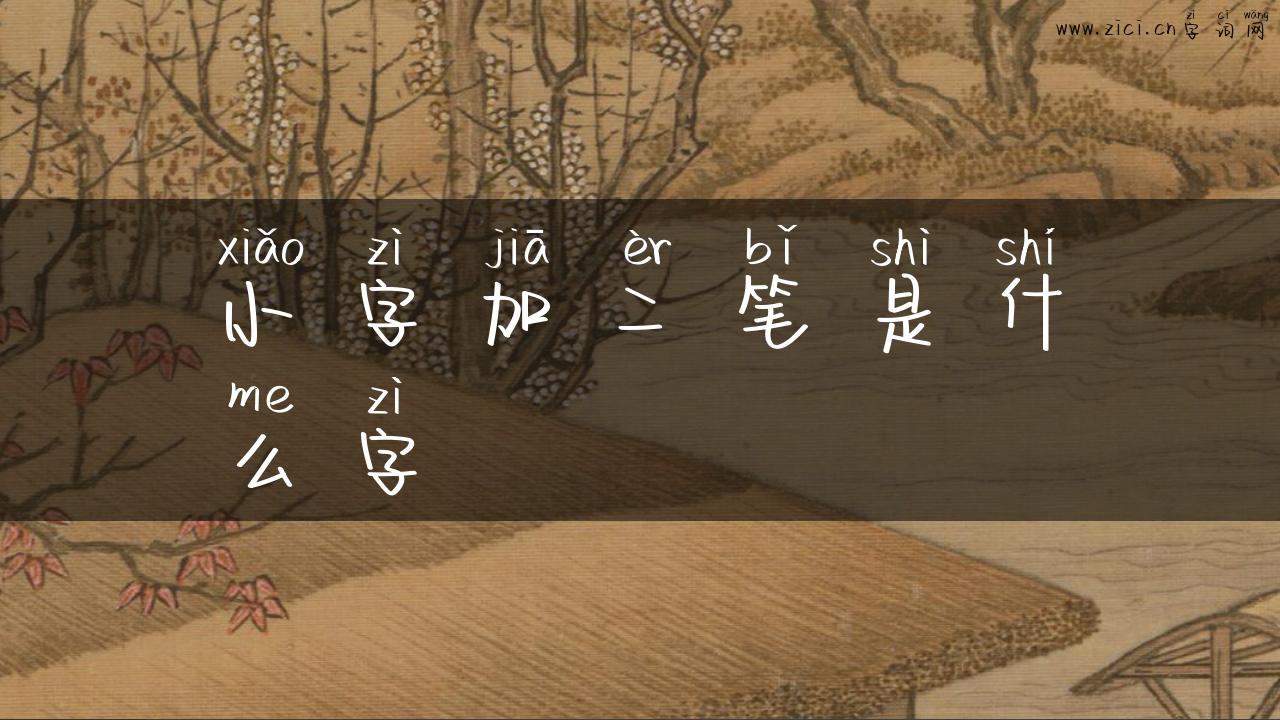 zì cí wǎng
www.zici.cn字词网
xiǎo zì jiā èr bǐ shì shí
小字加二笔是什
me zì
么字